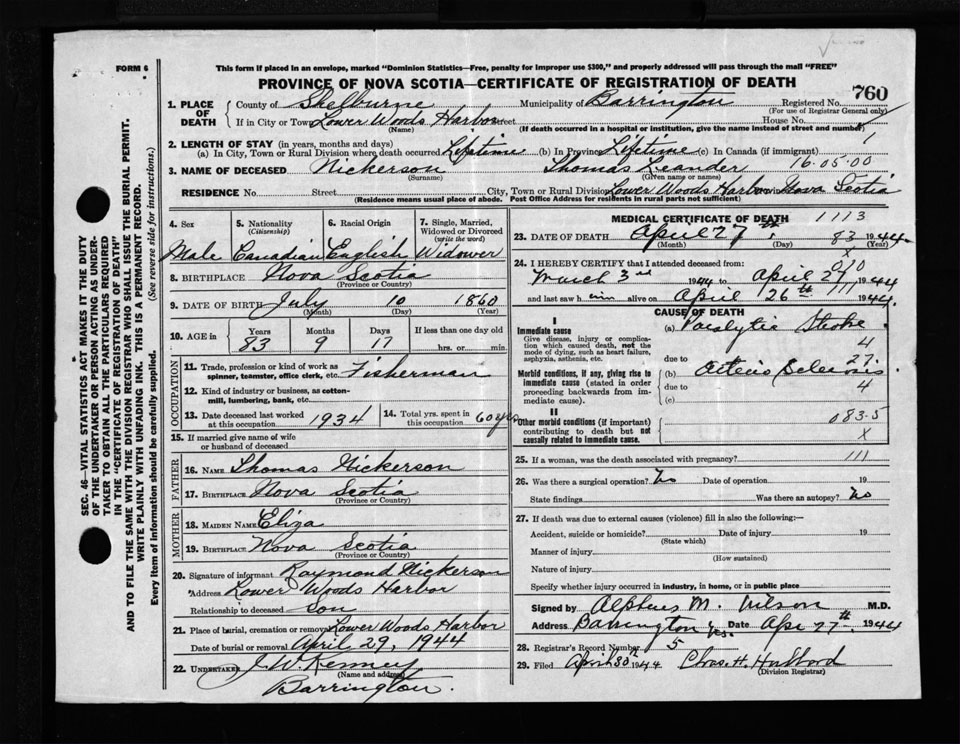 FORM 6
This form if placed in an envelope, marked "Dominion Statistics—Free, penalty for improper use $300," and properly addressed will pass through the mail "FREE"
PROVINCE OF NOVA SCOTIA—CERTIFICATE OF REGISTRATION OF DEATH
760
1. PLACE OF DEATH
County of Shelburne Municipality of Barrington Registered No.
(For use of Registrar General only)
If in City or Town Lower Woods Harbor Street House No.
(Name) (If death occurred in a hospital or institution, give the name instead of street and number)
2. LENGTH OF STAY (in years, months and days)
1
(a) In City, Town or Rural Division where death occurred Lifetime (b) In Province Lifetime (c) In Canada (if immigrant)
3. NAME OF DECEASED Nickerson Thomas Leander 16.05.00
(Surname) (Given name or names)
RESIDENCE No. Street City, Town or Rural Division Lower Woods Harbor Nova Scotia
(Residence means usual place of abode. Post Office Address for residents in rural parts not sufficient)
SEC. 46—VITAL STATISTICS ACT MAKES IT THE DUTY
OF THE UNDERTAKER OR PERSON ACTING AS UNDER-
TAKER TO OBTAIN ALL THE PARTICULARS REQUIRED
IN THE "CERTIFICATE OF REGISTRATION OF DEATH"
AND TO FILE THE SAME WITH THE DIVISION REGISTRAR WHO SHALL ISSUE THE BURIAL PERMIT.
WRITE PLAINLY WITH UNFADING INK. THIS IS A PERMANENT RECORD.
Every item of information should be carefully supplied. (See reverse side for instructions.)
4. Sex 5. Nationality 6. Racial Origin 7. Single, Married,
(Citizenship) Widowed or Divorced
(write the word)
Male Canadian English Widower
8. BIRTHPLACE Nova Scotia
(Province or Country)
9. DATE OF BIRTH July 10 1860
(Month) (Day) (Year)
10. AGE in Years Months Days If less than one day old
83 9 17 hrs. or min.
OCCUPATION
11. Trade, profession or kind of work as Fisherman
spinner, teamster, office clerk, etc.
12. Kind of industry or business, as cotton-
mill, lumbering, bank, etc.
13. Date deceased last worked 1934 14. Total yrs. spent in 60 yrs
at this occupation this occupation
15. If married give name of wife
or husband of deceased
FATHER
16. NAME Thomas Nickerson
17. BIRTHPLACE Nova Scotia
(Province or Country)
MOTHER
18. MAIDEN NAME Eliza
19. BIRTHPLACE Nova Scotia
(Province or Country)
20. Signature of informant Raymond Nickerson
Address Lower Woods Harbor
Relationship to deceased son
21. Place of burial, cremation or removal Lower Woods Harbor
Date of burial or removal April 29, 1944
22. UNDERTAKER J. W. Kenney
(Name and address)
Barrington.
MEDICAL CERTIFICATE OF DEATH 1113
23. DATE OF DEATH April 27th 83 1944
(Month) (Day) (Year)
X
24. I HEREBY CERTIFY that I attended deceased from: 010
March 3rd 1944 to April 27 1944
111
and last saw him alive on April 26th 1944
CAUSE OF DEATH
I
Immediate cause (a) Paralytic Stroke
Give disease, injury or complica-
tion which caused death, not the
mode of dying, such as heart failure,
asphyxia, asthenia, etc.
4
due to 27.
Morbid conditions, if any, giving rise to (b) Arterio Sclerosis
immediate cause (stated in order
proceeding backwards from im-
mediate cause).
due to 4
(c)
II
Other morbid conditions (if important) 083.5
contributing to death but not
causally related to immediate cause. X
25. If a woman, was the death associated with pregnancy? 111
26. Was there a surgical operation? No Date of operation 19
State findings Was there an autopsy? No
27. If death was due to external causes (violence) fill in also the following:—
Accident, suicide or homicide? Date of injury 19
(State which)
Manner of injury
(How sustained)
Nature of injury
Specify whether injury occurred in industry, in home, or in public place
Signed by Alpheus M. Wilson M.D.
Address Barrington Date Apr 27th 1944
28. Registrar's Record Number 5
29. Filed April 30th 1944 Chas. H. Hubbard
(Division Registrar)